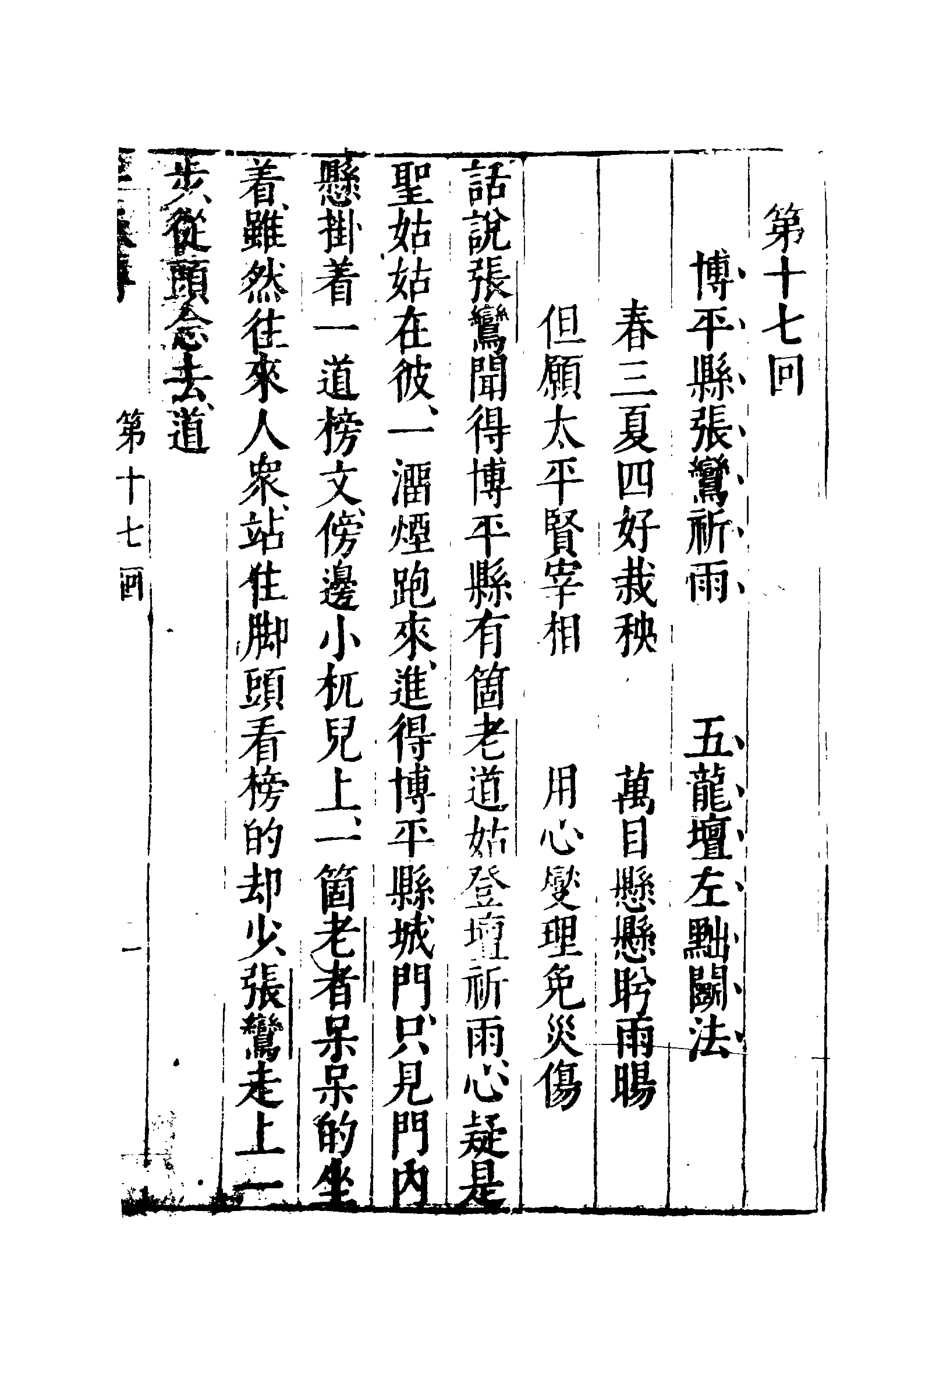 第十七回
博平縣張鸞祈雨　五龍壇左黜鬭法
春三夏四好栽秧　萬目懸懸盻雨暘
但願太平賢宰相　用心燮理免災傷
話說張鸞聞得博平縣有箇老道姑登壇祈雨、心疑是
聖姑姑在彼、一溜煙跑來、進得博平縣城門、只見門內
懸掛着一道榜文、傍邊小杌兒上、一箇老者呆呆的坐
着、雖然往來人衆、站住脚頭看榜的却少、張鸞走上一
步、從頭念去、道、
第十七回　一